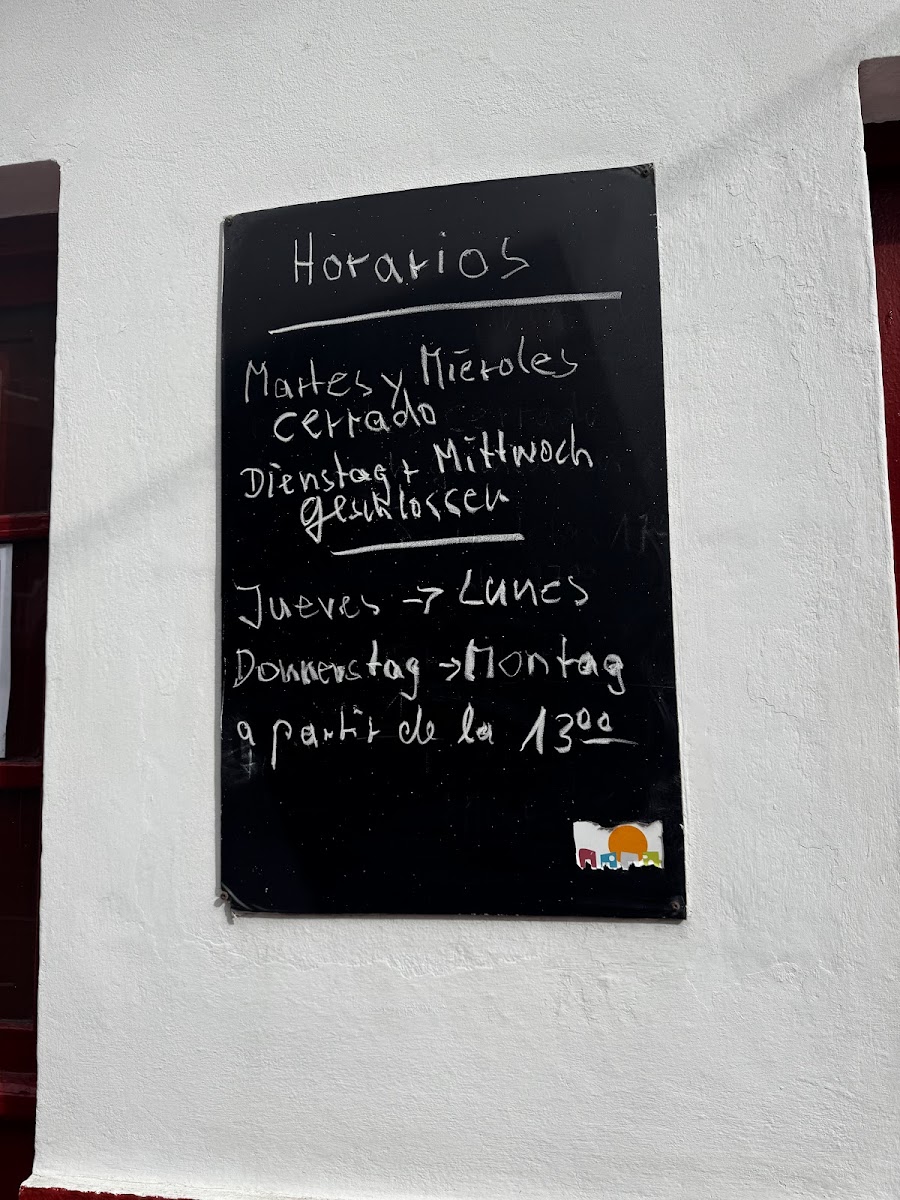 Horarios
Martes y Mieroles
cerrado
Dienstag + Mittwoch
geschlossen
Jueves → Lunes
Donnerstag → Montag
a partir de la 13⁰⁰